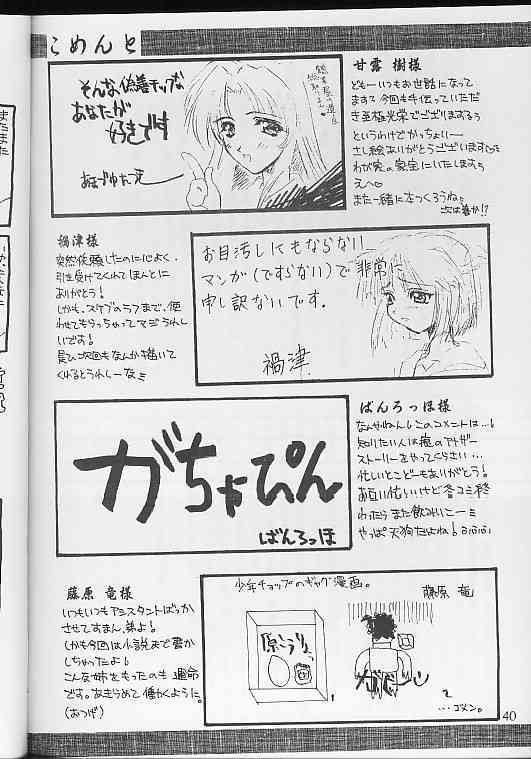 こめんと
甘露 樹様
どもーいつもお世話になって
ます。今回も手伝っていただ
き至極光栄でございまするぅ
というわけでかっちょいー
さし絵ありがとうございます♡
わが家の家宝にいたしますぅ
えへ♡
また一緒に本つくろうね。
次は春か!?
そんな、偽善チップな
あなたが
好きです
禍津様
突然依頼したのにこころよく、
引き受けてくれてほんとに
ありがとう!
しかも、スケブのラフまで、使
わせてもらっちゃってマジうれし
いです!
是ひ次回もなんか描いて
くれるとうれしーなミ
お目汚しにもならない
マンガ(ですらない)で非常に
申し訳ないです。
禍津
ばんろっほ様
なんやねん!このコメントは…!
知りたい人は痕のアナザー
ストーリーをやってくらさい…
忙しいとこどーもありがとう!
お互い忙しいけど冬コミ終
わったらまた飲みにいこーミ
やっぱ天狗だよね!ふふふ
がちゃぴん
ばんろっほ
藤原 竜様
いつもいつもアシスタントばっか
させてすまん、弟よ!
しかも今回は小説まで書か
しちゃったよ!
こんな姉をもったのも運命
です。あきらめて働くように。
(おつげ)
少年チョップのギャグ漫画。
藤原 竜
1
ガバーン
2
…ゴメン。
40